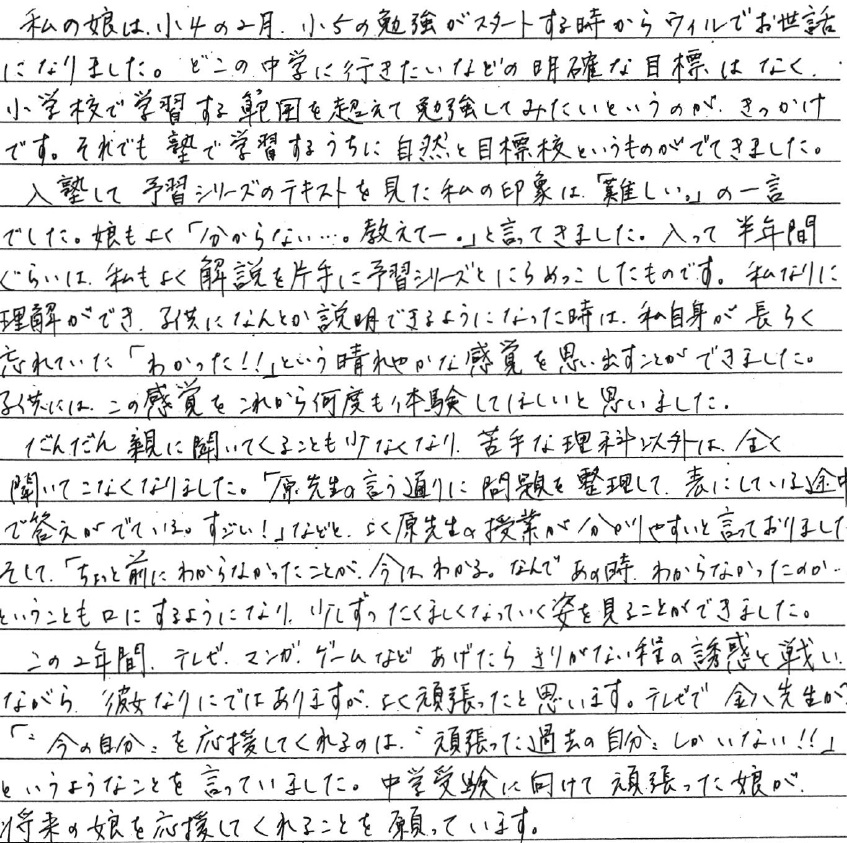 私の娘は、小4の2月、小5の勉強がスタートする時からウィルでお世話
になりました。どこの中学に行きたいなどの明確な目標はなく、
小学校で学習する範囲を超えて勉強してみたいというのが、きっかけ
です。それでも塾で学習するうちに自然と目標校というものがでてきました。
入塾して予習シリーズのテキストを見た私の印象は、「難しい。」の一言
でした。娘もよく「分からない…。教えてー。」と言ってきました。入って半年間
ぐらいは、私もよく解説を片手に予習シリーズとにらめっこしたものです。私なりに
理解ができ、子供になんとか説明できるようになった時は、私自身が長らく
忘れていた「わかった!!」という晴れやかな感覚を思い出すことができました。
子供には、この感覚をこれから何度も体験してほしいと思いました。
だんだん親に聞いてくることも少なくなり、苦手な理科以外は、全く
聞いてこなくなりました。「原先生の言う通りに問題を整理して、表にしている途中
で答えがでている。すごい!」などと、よく原先生の授業が分かりやすいと言っておりました
そして、「ちょっと前にわからなかったことが、今はわかる。なんであの時、わからなかったのか…
ということも口にするようになり、少しずつたくましくなっていく姿を見ることができました。
この2年間、テレビ、マンガ、ゲームなどあげたらきりがない程の誘惑と戦い
ながら、彼女なりにではありますが、よく頑張ったと思います。テレビで金八先生が
「〝今の自分〟を応援してくれるのは、〝頑張った過去の自分〟しかいない!!」
というようなことを言っていました。中学受験に向けて頑張った娘が、
将来の娘を応援してくれることを願っています。